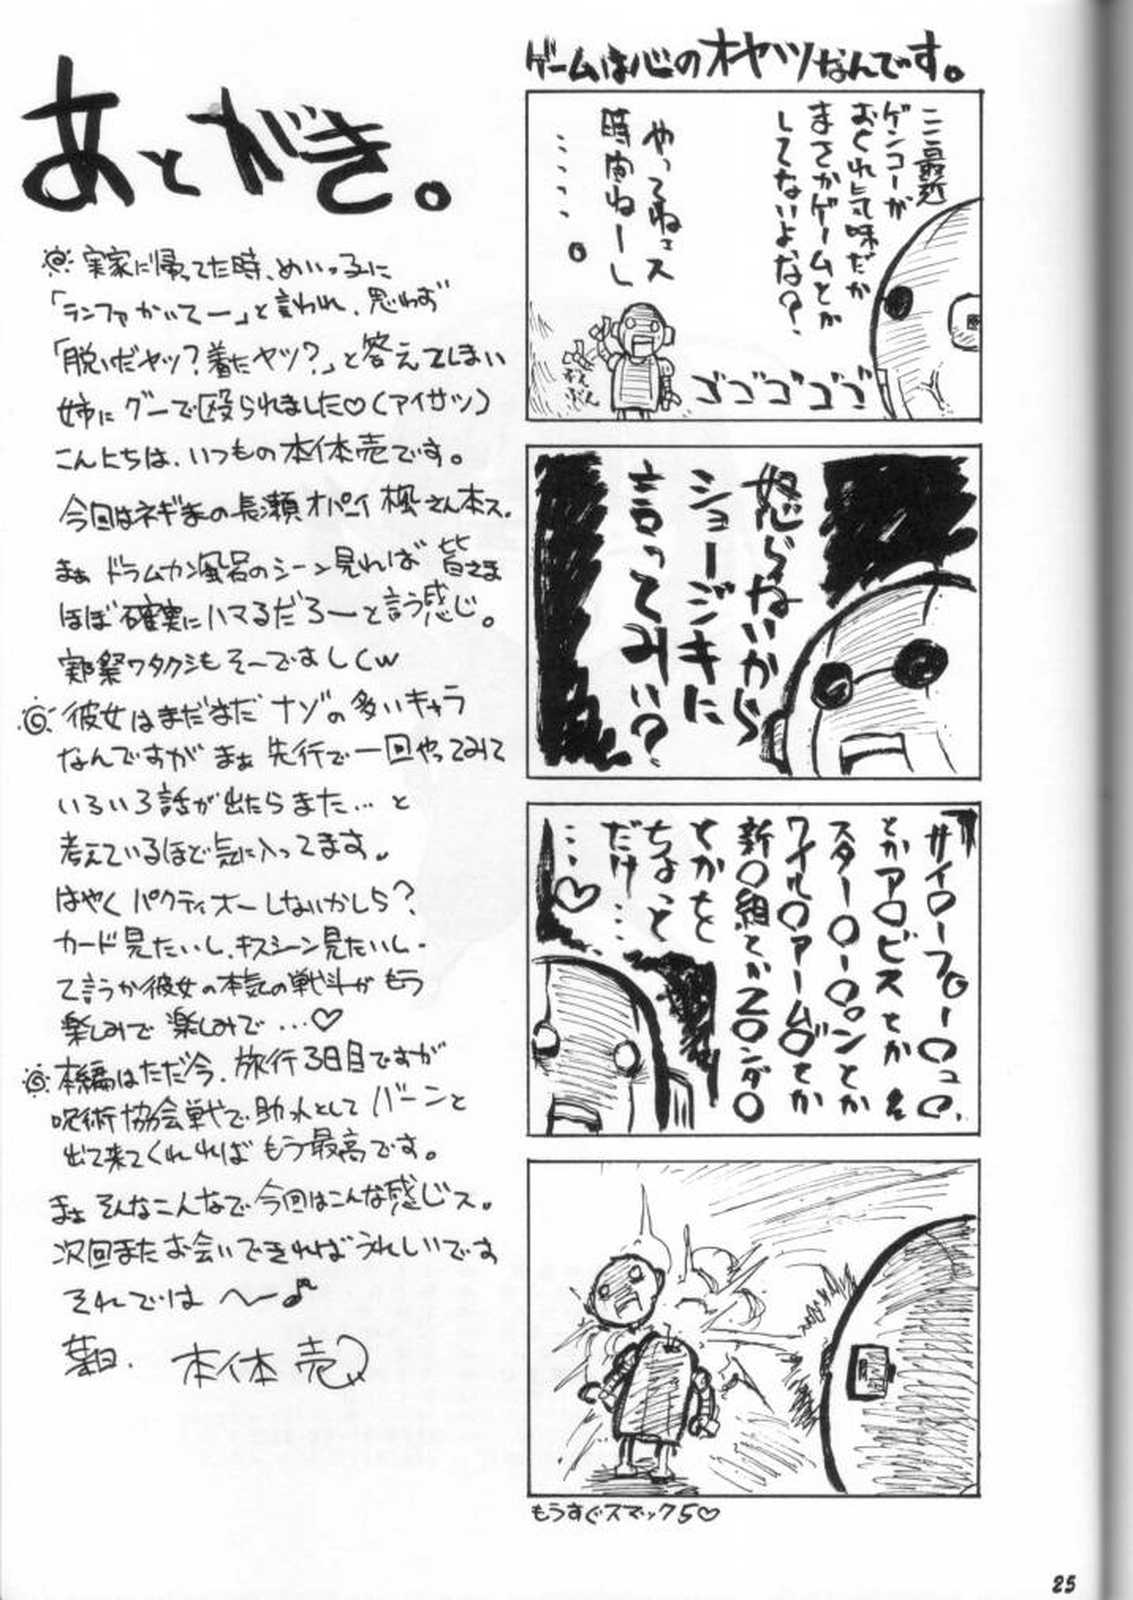 あとがき。
実家に帰ってた時、めいっ子に
「ランファかいてー」と言われ、思わず
「脱いだヤツ?着たヤツ?」と答えてしまい
姉にグーで殴られました♡(アイサツ)
こんにちは、いつもの本体売です。
今回はネギまの長瀬オパーイ楓さん本ス。
まぁドラムカン風呂のシーン見れば皆さま
ほぼ確実にハマるだろーと言う感じ。
実祭ワタクシもそーでましくw
彼女はまだまだナゾの多いキャラ
なんですがまぁ先行で一回やってみて
いろいろ話が出たらまた…と
考えているほど気に入ってます。
はやくパクティオーしないかしら?
カード見たいし、キスシーン見たいし・
て言うか彼女の本気の戦斗がもう
楽しみで楽しみで…♡
本編はただ今、旅行3日目ですが
呪術協会戦で助っ人としてバーンと
出て来てくれればもう最高です。
まぁそんなこんなで今回はこんな感じス。
次回またお会いできればうれしいです
それでは〜♪
本体売
ゲームは心のオヤツなんです。
ここ最近
ゲンコーが
おくれ気味だか
まさかゲームとか
してないよな?
やってねェス
時間ねーし
……。
ぶんぶん
ゴゴゴゴゴ
怒らないから
ショージキに
言ってみぃ?
サイ〇ーフ〇ー〇ュ〇、
とかア〇ビスとか
スター〇ー〇〇ンとか
ワイル〇アーム〇とか
新〇組とかZ〇ンダ〇
とかをちょっと
だけ…
…♡
もうすぐスマック5♡
25